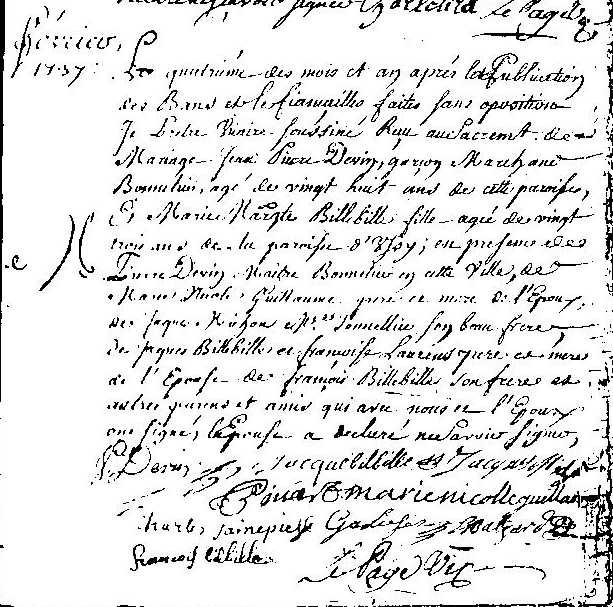 Le Page
Février
1737
Le quatriéme des mois et an aprés la Publication
des Bans et le fiancailles faites sans oposition
Je Prêtre Vicaire soussiné Reçu au Sacremt. de
Mariage Jean Pierre Devin, garçon Marchand
Bonnetier, agé de vingt huit ans de cette paroisse,
Et Marie Margte Billebille fille agée de vingt
trois ans de la paroisse d'Issy; en presence de
Pierre Devin Maitre Bonnetier en cette Ville, de
Marie Nicole Guillaume pere et mere de l'Epoux,
de Jaque son beau frere,
de Jaques Billebille et françoise Laurens pere et mere
de l'Epouse de françois Billebille son frere et
autres parens et amis qui avec nous et l'Epoux
ont signé, l'Epouse a declaré ne savoir signer,
P Devin Jacque bilbille Jacques
marie nicolle guillau
Charles
francois bilbille
Le Page Vic